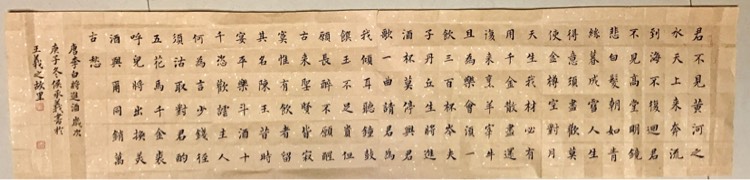 君不見黃河之
水天上來奔流
到海不復迴君
不見高堂明鏡
悲白髮朝如青
絲暮成雪人生
得意須盡歡莫
使金樽空對月
天生我材必有
用千金散盡還
復來烹羊宰牛
且為樂會須一
飲三百杯岑夫
子丹丘生將進
酒杯莫停與君
歌一曲請君為
我傾耳聽鐘鼓
饌玉不足貴但
願長醉不願醒
古來聖賢皆寂
寞惟有飲者留
其名陳王昔時
宴平樂斗酒十
千恣歡謔主人
何為言少錢徑
須沽取對君酌
五花馬千金裘
呼兒將出換美
酒與爾同銷萬
古愁
唐李白將進酒 歲次
庚子冬侯義書於
王羲之故里